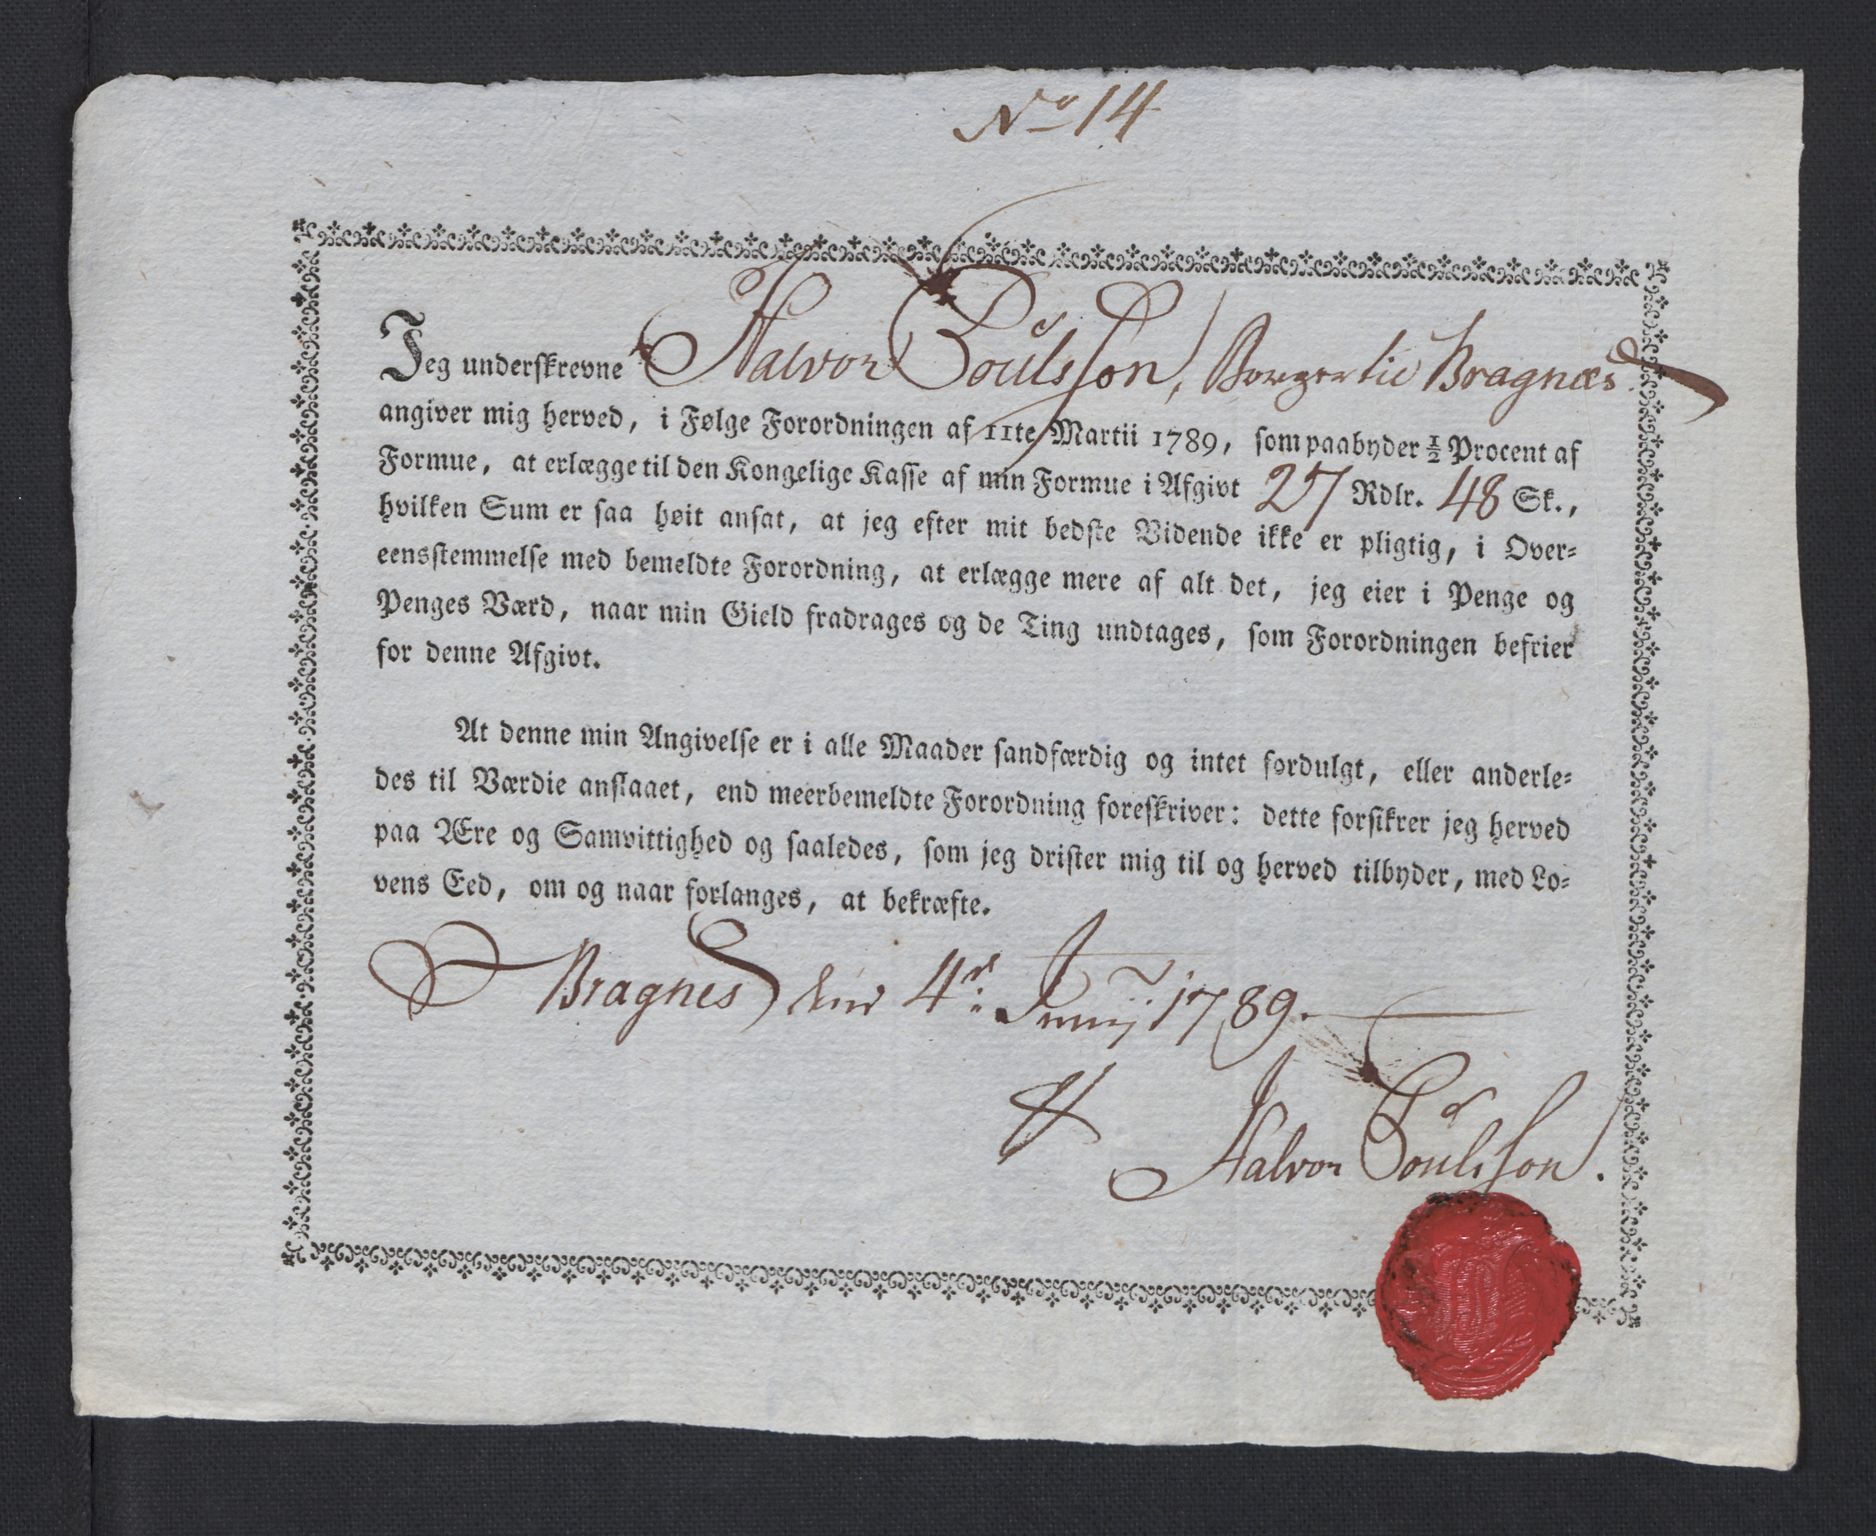 No 14
Jeg underskrevne Halvor Poulsson, Borger til Bragnæs
angiver mig herved, i Følge Forordningen af 11te Martii 1789, som paabyder ½ Procent af
Formue, at erlægge til den Kongelige Kasse af min Formue i Afgivt 27 Rdlr. 48 Sk.,
hvilken Sum er saa høit ansat, at jeg efter mit bedste Vidende ikke er pligtig, i Over-
eensstemmelse med bemeldte Forordning, at erlægge mere af alt det, jeg eier i Penge og
Penges Værd, naar min Gield fradrages og de Ting undtages, som Forordningen befrier
for denne Afgivt.
At denne min Angivelse er i alle Maader sandfærdig og intet fordulgt, eller anderle-
des til Værdie anslaaet, end meerbemeldte Forordning foreskriver: dette forsikrer jeg herved
paa Ære og Samvittighed og saaledes, som jeg drister mig til og herved tilbyder, med Lo-
vens Eed, om og naar forlanges, at bekræfte.
Bragnes den 4de Junij 1789.
Halvor Poulsson.